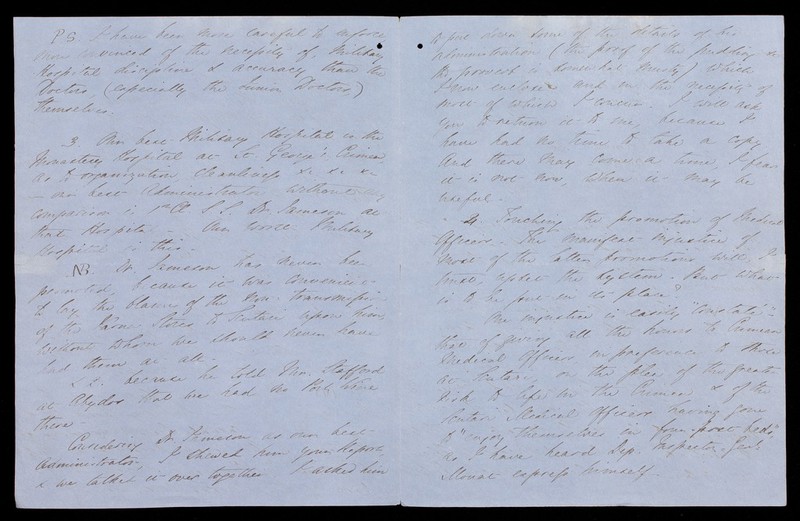 PS. I have been more careful to enforce
more convinced of the necessity of, Military
Hospital discipline & accuracy than the
Doctors (especially the Junior Doctors)
themselves.
3. Our best Military Hospital is the
Monastery Hospital at St. George's, Crimea
as to organization cleanliness &c &c &c
— our best Administrator without
comparison is 1st Cl S.S. Dr Jameson at
that Hospital — Our worst Military
Hospital is this.
NB. Dr. Jameson has never been
promoted because it was convenient
to lay the blame of the non-transmission
of the stores to Scutari upon him,
without whom we should never have
had them at all.
& 2. because he told Mr. Stafford
at Abydos that we had no Port Wine
there —
Considering Dr. Jameson as our best
Administrator, I shewed him your Report,
& we talked it over together I asked him
to put down some of the details of his
administration (the proof of the pudding as
the proverb is somewhat musty) which
I now enclose and in the necessity of
most of which I concur. I will ask
you to return it to me, because I
have had no time to take a copy
And there may come a time, I fear
it is not now, when it may be
useful.
4 Touching the promotion of Medical
Officers. The manifest injustice of
most of the latter promotions will, in
time, upset the system. But what
is to be put in its place?
The injustice is easily "constaté" —
that of giving all the honors to Crimean
Medical Officers in preference to those
at Scutari, on the plea of the greater
risk to life in the Crimea, & of the
Scutari Medical Officers having gone
to "enjoy themselves in four-post beds,"
as I have heard Dep. Inspector-Genl.
Mouat express himself —